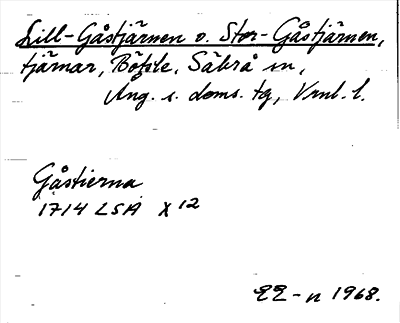 Lill-Gåstjärnen o. Stor-Gåstjärnen,
tjärnar, Säbrå sn,
Ång. s. doms. tg, Vrnl. l.
Gåstierna
1714 LSA X 12
EE-n 1968.